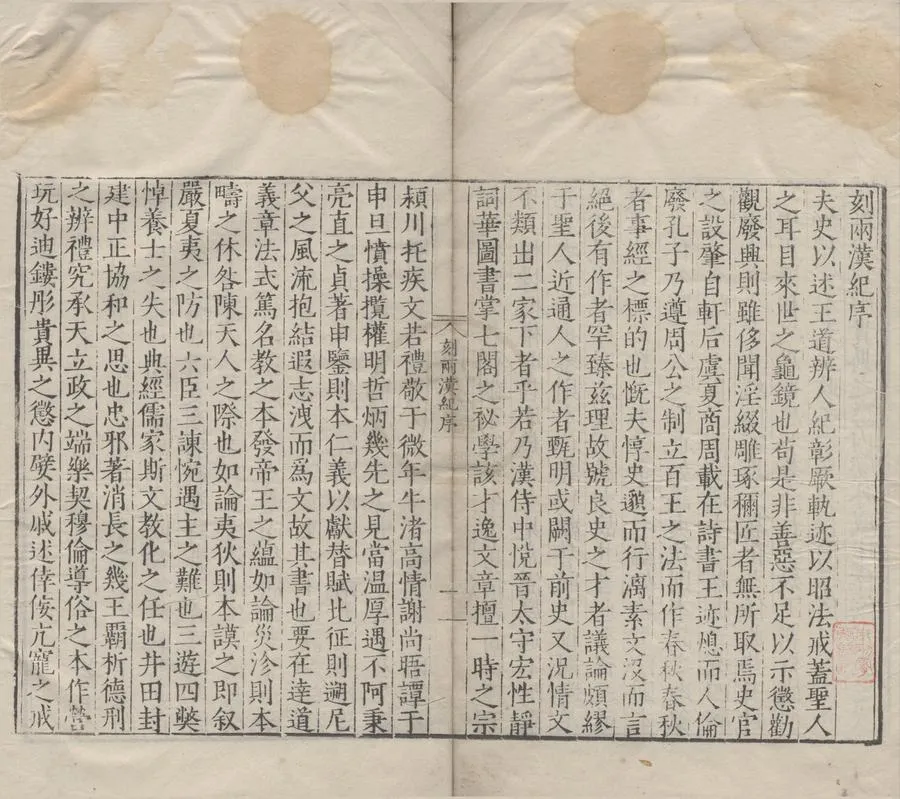 刻兩漢紀序
夫史以述王道辨人紀彰厥軌迹以昭法戒蓋聖人
之耳目來世之龜鏡也苟是非善惡不足以示懲勸
觀廢興則雖侈聞淫綴雕琢稱匠者無所取焉史官
之設肇自軒后虞夏商周載在詩書王迹熄而人倫
廢孔子乃遵周公之制立百王之法而作春秋春秋
者事經之標的也慨夫惇史邈而行漓素文沒而言
絕後有作者罕臻茲理故號良史之才者議論頗繆
于聖人近通人之作者甄明或闕于前史又況情文
不類出二家下者乎若乃漢侍中悅晉太守宏性靜
詞華圖書掌七閣之祕學該才逸文章擅一時之宗
刻兩漢紀序
一
潁川托疾文若禮敬于微年牛渚高情謝尚晤譚于
申旦憤操攬權明哲炳幾先之見當温厚遇不阿秉
亮直之貞著申鑒則本仁義以獻替賦北征則遡尼
父之風流抱結遐志洩而爲文故其書也要在達道
義章法式篤名教之本發帝王之蘊如論災沴則本
疇之休咎陳天人之際也如論夷狄則本謨之即叙
嚴夏夷之防也六臣三諫惋遇主之難也三遊四獘
悼養士之失也典經儒家斯文教化之任也井田封
建中正協和之思也忠邪著消長之幾王霸析德刑
之辨禮究承天立政之端樂契穆倫導俗之本作營
玩好迪鏤彤貴異之懲內嬖外戚述倖佞亢寵之戒